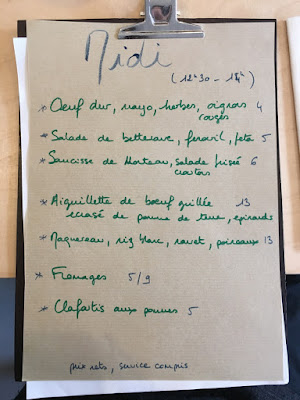 Midi
(12h30 - 15h)
* Oeuf dur, mayo, herbes, oignons 4
rouges
* Salade de betterave, fenouil, feta 5
* Saucisse de Morteau, salade frisée 6
croutons
* Aiguillette de bœuf grillée 13
écrasé de pomme de terre, épinards
* Maquereau, riz blanc, navet, poireaux 13
* Fromages 5/9
* Clafoutis aux pommes 5
prix nets, service compris